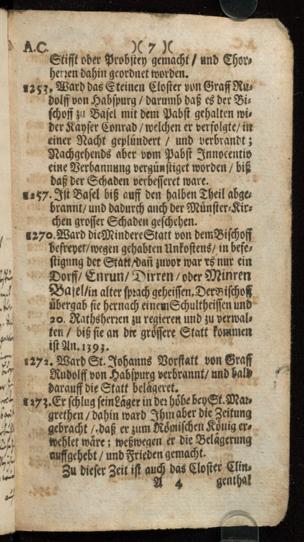 A.C. )( 7 )(
Stifft oder Probstey gemacht / und Thor-
herren dahin geordnet worden.
1253. Ward das Steinen Closter von Graff Ru-
dolff von Habspurg / darumb daß es der Bi-
schoff zu Basel mit dem Pabst gehalten wi-
der Kayser Conrad / welchen er verfolgte / in
einer Nacht geplündert / und verbrandt;
Nachgehends aber vom Pabst Innocentio
eine Verbannung vergünstiget worden / biß
daß der Schaden verbesseret ware.
1257. Ist Basel biß auff den halben Theil abge-
brannt / und dadurch auch der Münster-Kir-
chen grosser Schaden geschehen.
1270. Ward die Mindere Statt von dem Bischoff
befreyet / wegen gehabten Unkostens / in befe-
stigung der Statt / dañ zuvor war es nur ein
Dorff / Enrun / Dirren / oder Minren
Bazel / in alter sprach geheissen. Der Bischoff
übergab sie hernach einem Schultheissen und
20. Rathsherren zu regieren und zu verwal-
ten / biß sie an die grössere Statt kommen
ist An. 1393.
1272. Ward St. Johanns Vorstatt von Graff
Rudolff von Habspurg verbrannt / und bald
darauff die Statt belägeret.
1273. Er schlug sein Läger in der höhe bey St. Mar-
grethen / dahin ward Ihm aber die Zeitung
gebracht / daß er zum Römischen König er-
wehlet wäre; weßwegen er die Belägerung
auffgehebt / und Frieden gemacht.
Zu dieser Zeit ist auch das Closter Clin-
A 4 genthal